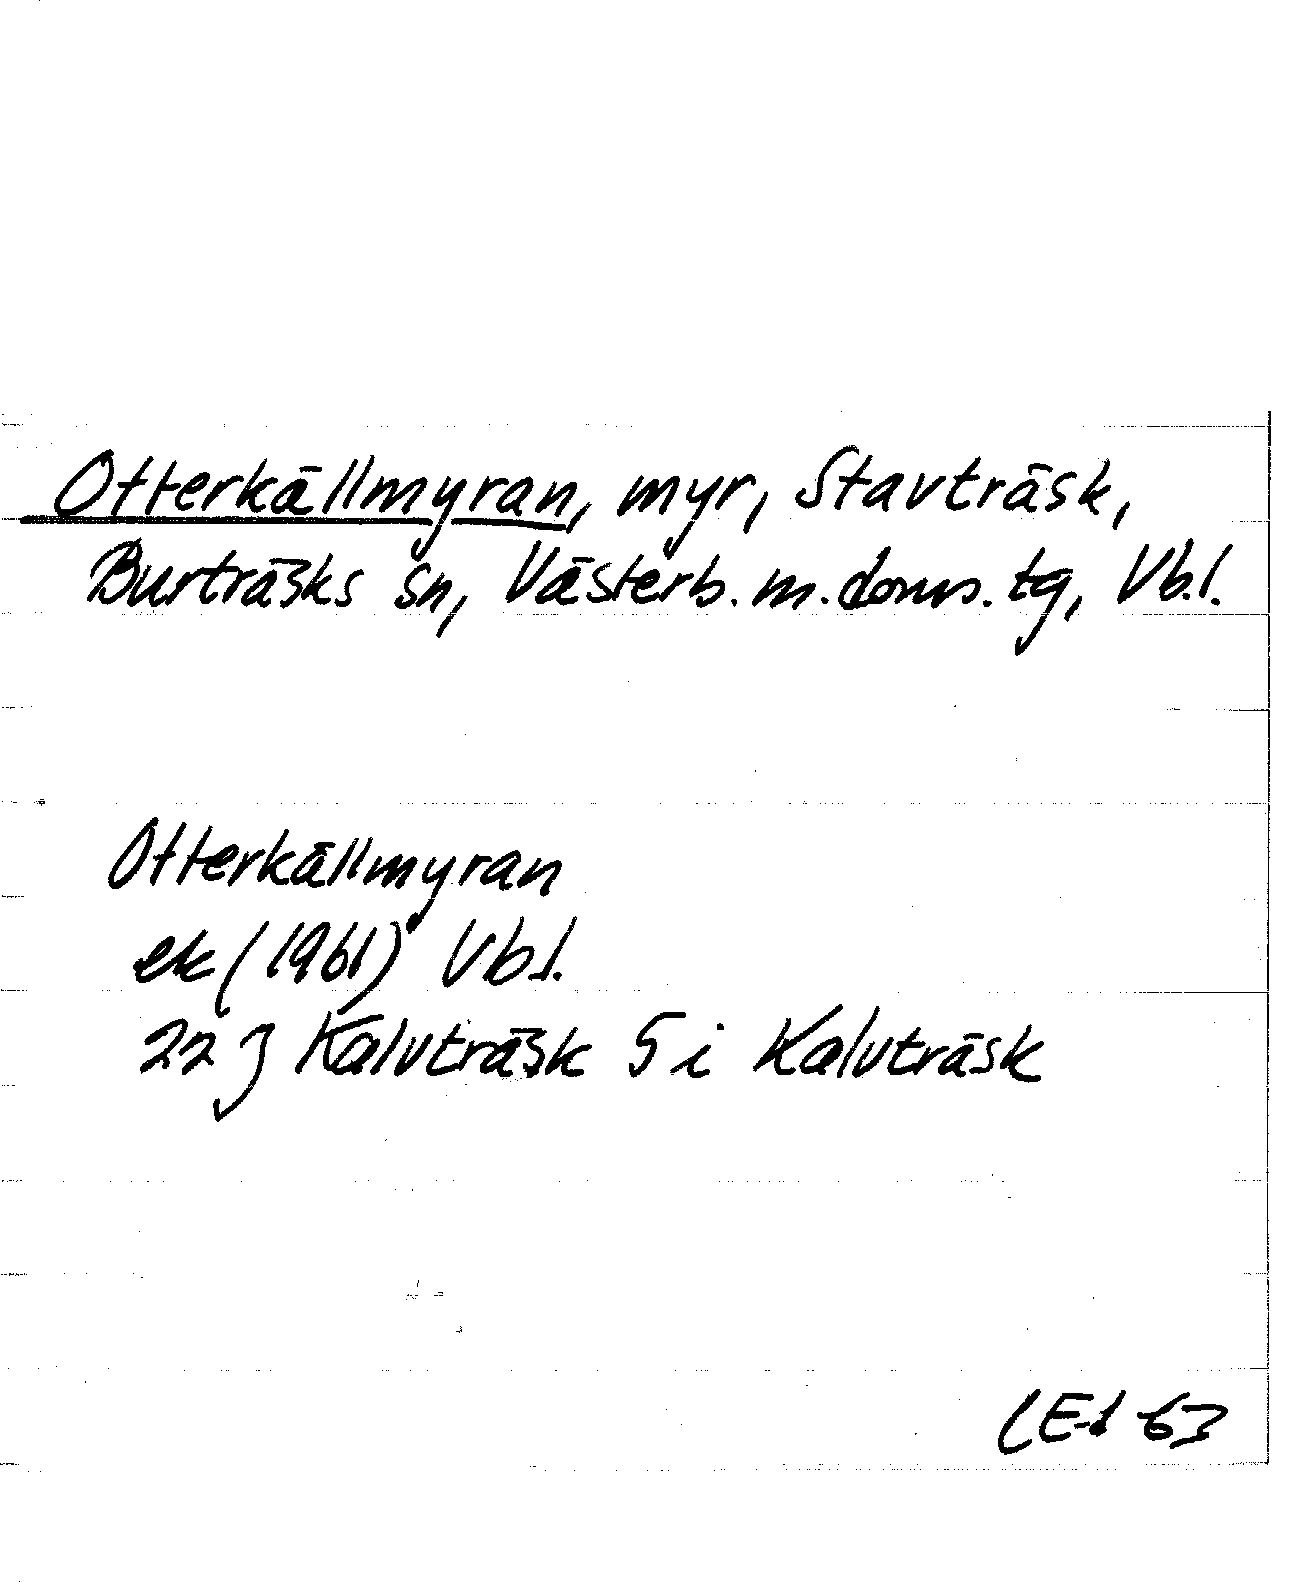 Otterkällmyran, myr, Stavträsk,
Burträsks sn, Västerb. m. doms. tg, Vb.l.
Otterkällmyran
ek (1961) Vb.l.
22 J Kalvträsk 5 i Kalvträsk
CEd 63